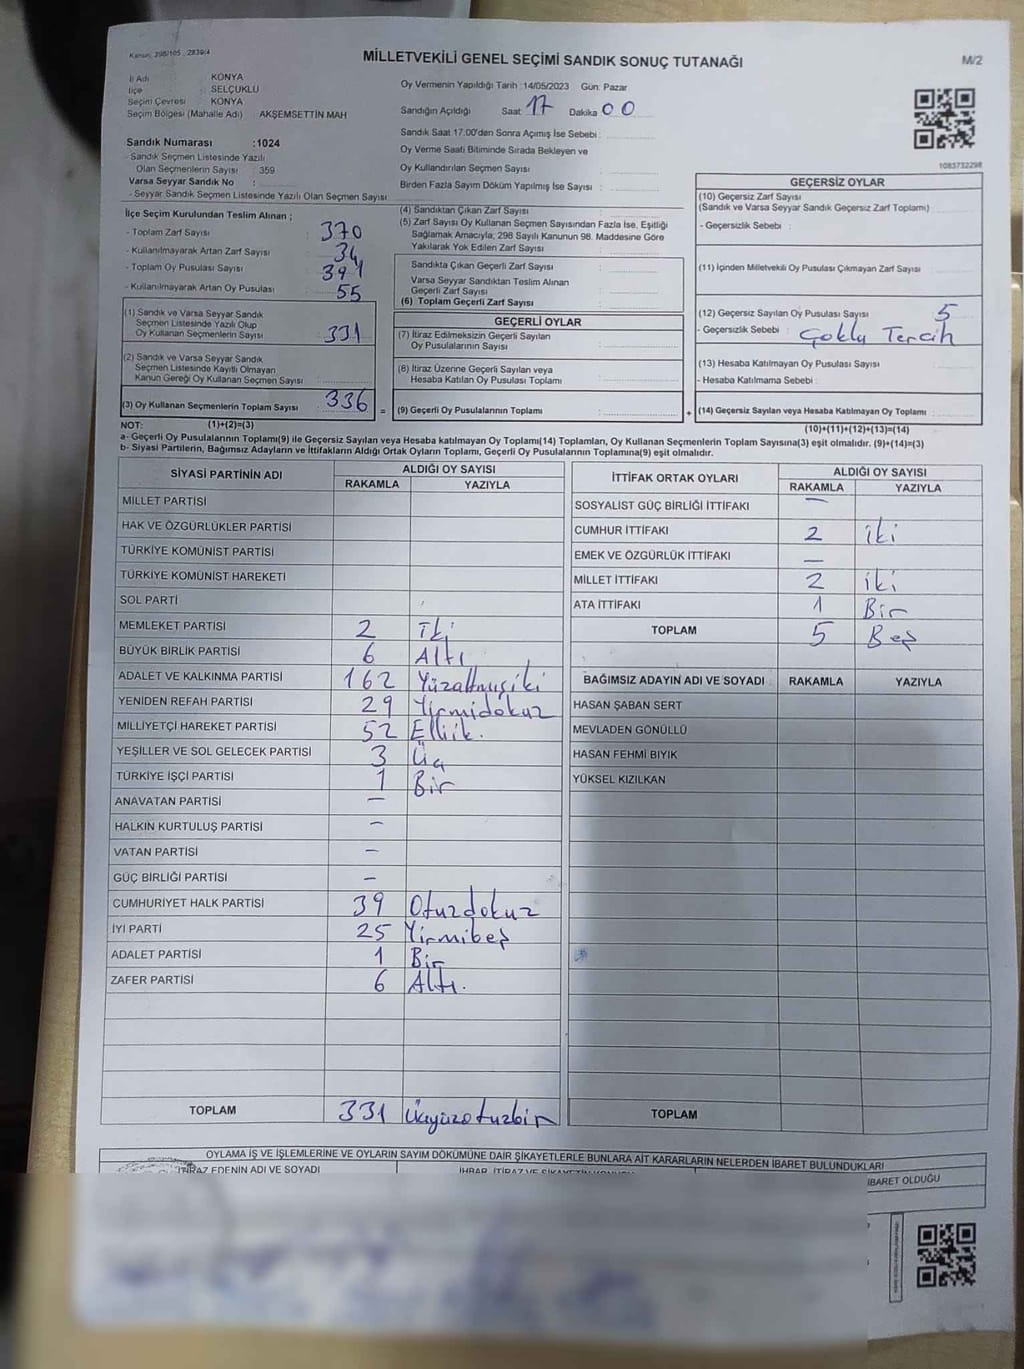 Kanun: 298/105 , 2839/4
MİLLETVEKİLİ GENEL SEÇİMİ SANDIK SONUÇ TUTANAĞI
M/2
İl Adı : KONYA
İlçe : SELÇUKLU
Seçim Çevresi : KONYA
Seçim Bölgesi (Mahalle Adı) : AKŞEMSETTİN MAH
Sandık Numarası :1024
- Sandık Seçmen Listesinde Yazılı
Olan Seçmenlerin Sayısı : 359
Varsa Seyyar Sandık No :
- Seyyar Sandık Seçmen Listesinde Yazılı Olan Seçmen Sayısı
Oy Vermenin Yapıldığı Tarih :14/05/2023 Gün: Pazar
Sandığın Açıldığı Saat 17 Dakika 00
Sandık Saat 17.00'den Sonra Açımış İse Sebebi :
Oy Verme Saati Bitiminde Sırada Bekleyen ve
Oy Kullandırılan Seçmen Sayısı :
Birden Fazla Sayım Döküm Yapılmış İse Sayısı :
1083732298
İlçe Seçim Kurulundan Teslim Alınan ;
- Toplam Zarf Sayısı : 370
- Kullanılmayarak Artan Zarf Sayısı : 34
- Toplam Oy Pusulası Sayısı : 391
- Kullanılmayarak Artan Oy Pusulası : 55
(1) Sandık ve Varsa Seyyar Sandık
Seçmen Listesinde Yazılı Olup
Oy Kullanan Seçmenlerin Sayısı : 331
(2) Sandık ve Varsa Seyyar Sandık
Seçmen Listesinde Kayıtlı Olmayan
Kanun Gereği Oy Kullanan Seçmen Sayısı
(3) Oy Kullanan Seçmenlerin Toplam Sayısı : 336
(1)+(2)=(3)
(4) Sandıktan Çıkan Zarf Sayısı :
(5) Zarf Sayısı Oy Kullanan Seçmen Sayısından Fazla İse, Eşitliği
Sağlamak Amacıyla, 298 Sayılı Kanunun 98. Maddesine Göre
Yakılarak Yok Edilen Zarf Sayısı :
Sandıkta Çıkan Geçerli Zarf Sayısı :
Varsa Seyyar Sandıktan Teslim Alınan
Geçerli Zarf Sayısı :
(6) Toplam Geçerli Zarf Sayısı :
GEÇERLİ OYLAR
(7) İtiraz Edilmeksizin Geçerli Sayılan
Oy Pusulalarının Sayısı :
(8) İtiraz Üzerine Geçerli Sayılan veya
Hesaba Katılan Oy Pusulası Toplamı :
= (9) Geçerli Oy Pusulalarının Toplamı :
GEÇERSİZ OYLAR
(10) Geçersiz Zarf Sayısı
(Sandık ve Varsa Seyyar Sandık Geçersiz Zarf Toplamı)
- Geçersizlik Sebebi :
(11) İçinden Milletvekili Oy Pusulası Çıkmayan Zarf Sayısı :
(12) Geçersiz Sayılan Oy Pusulası Sayısı : 5
- Geçersizlik Sebebi : Çoklu Tercih
(13) Hesaba Katılmayan Oy Pusulası Sayısı :
- Hesaba Katılmama Sebebi :
+ (14) Geçersiz Sayılan veya Hesaba Katılmayan Oy Toplamı :
(10)+(11)+(12)+(13)=(14)
NOT:
a- Geçerli Oy Pusulalarının Toplamı(9) ile Geçersiz Sayılan veya Hesaba katılmayan Oy Toplamı(14) Toplamları, Oy Kullanan Seçmenlerin Toplam Sayısına(3) eşit olmalıdır. (9)+(14)=(3)
b- Siyasi Partilerin, Bağımsız Adayların ve İttifakların Aldığı Ortak Oyların Toplamı, Geçerli Oy Pusulalarının Toplamına(9) eşit olmalıdır.
SİYASİ PARTİNİN ADI ALDIĞI OY SAYISI
RAKAMLA YAZIYLA
MİLLET PARTİSİ
HAK VE ÖZGÜRLÜKLER PARTİSİ
TÜRKİYE KOMÜNİST PARTİSİ
TÜRKİYE KOMÜNİST HAREKETİ
SOL PARTİ
MEMLEKET PARTİSİ 2 İki
BÜYÜK BİRLİK PARTİSİ 6 Altı
ADALET VE KALKINMA PARTİSİ 162 Yüzaltmışiki
YENİDEN REFAH PARTİSİ 29 Yirmidokuz
MİLLİYETÇİ HAREKET PARTİSİ 52
YEŞİLLER VE SOL GELECEK PARTİSİ 3 Üç
TÜRKİYE İŞÇİ PARTİSİ 1 Bir
ANAVATAN PARTİSİ —
HALKIN KURTULUŞ PARTİSİ —
VATAN PARTİSİ —
GÜÇ BİRLİĞİ PARTİSİ —
CUMHURİYET HALK PARTİSİ 39 Otuzdokuz
İYİ PARTİ 25 Yirmibeş
ADALET PARTİSİ 1 Bir
ZAFER PARTİSİ 6 Altı.
TOPLAM 331 Üçyüzotuzbir
İTTİFAK ORTAK OYLARI ALDIĞI OY SAYISI
RAKAMLA YAZIYLA
SOSYALİST GÜÇ BİRLİĞİ İTTİFAKI —
CUMHUR İTTİFAKI 2 iki
EMEK VE ÖZGÜRLÜK İTTİFAKI —
MİLLET İTTİFAKI 2 iki
ATA İTTİFAKI 1 Bir
TOPLAM 5 Beş
BAĞIMSIZ ADAYIN ADI VE SOYADI RAKAMLA YAZIYLA
HASAN ŞABAN SERT
MEVLADEN GÖNÜLLÜ
HASAN FEHMİ BIYIK
YÜKSEL KIZILKAN
TOPLAM
OYLAMA İŞ VE İŞLEMLERİNE VE OYLARIN SAYIM DÖKÜMÜNE DAİR ŞİKAYETLERLE BUNLARA AİT KARARLARIN NELERDEN İBARET BULUNDUKLARI
İTİRAZ EDENİN ADI VE SOYADI
İBARET OLDUĞU